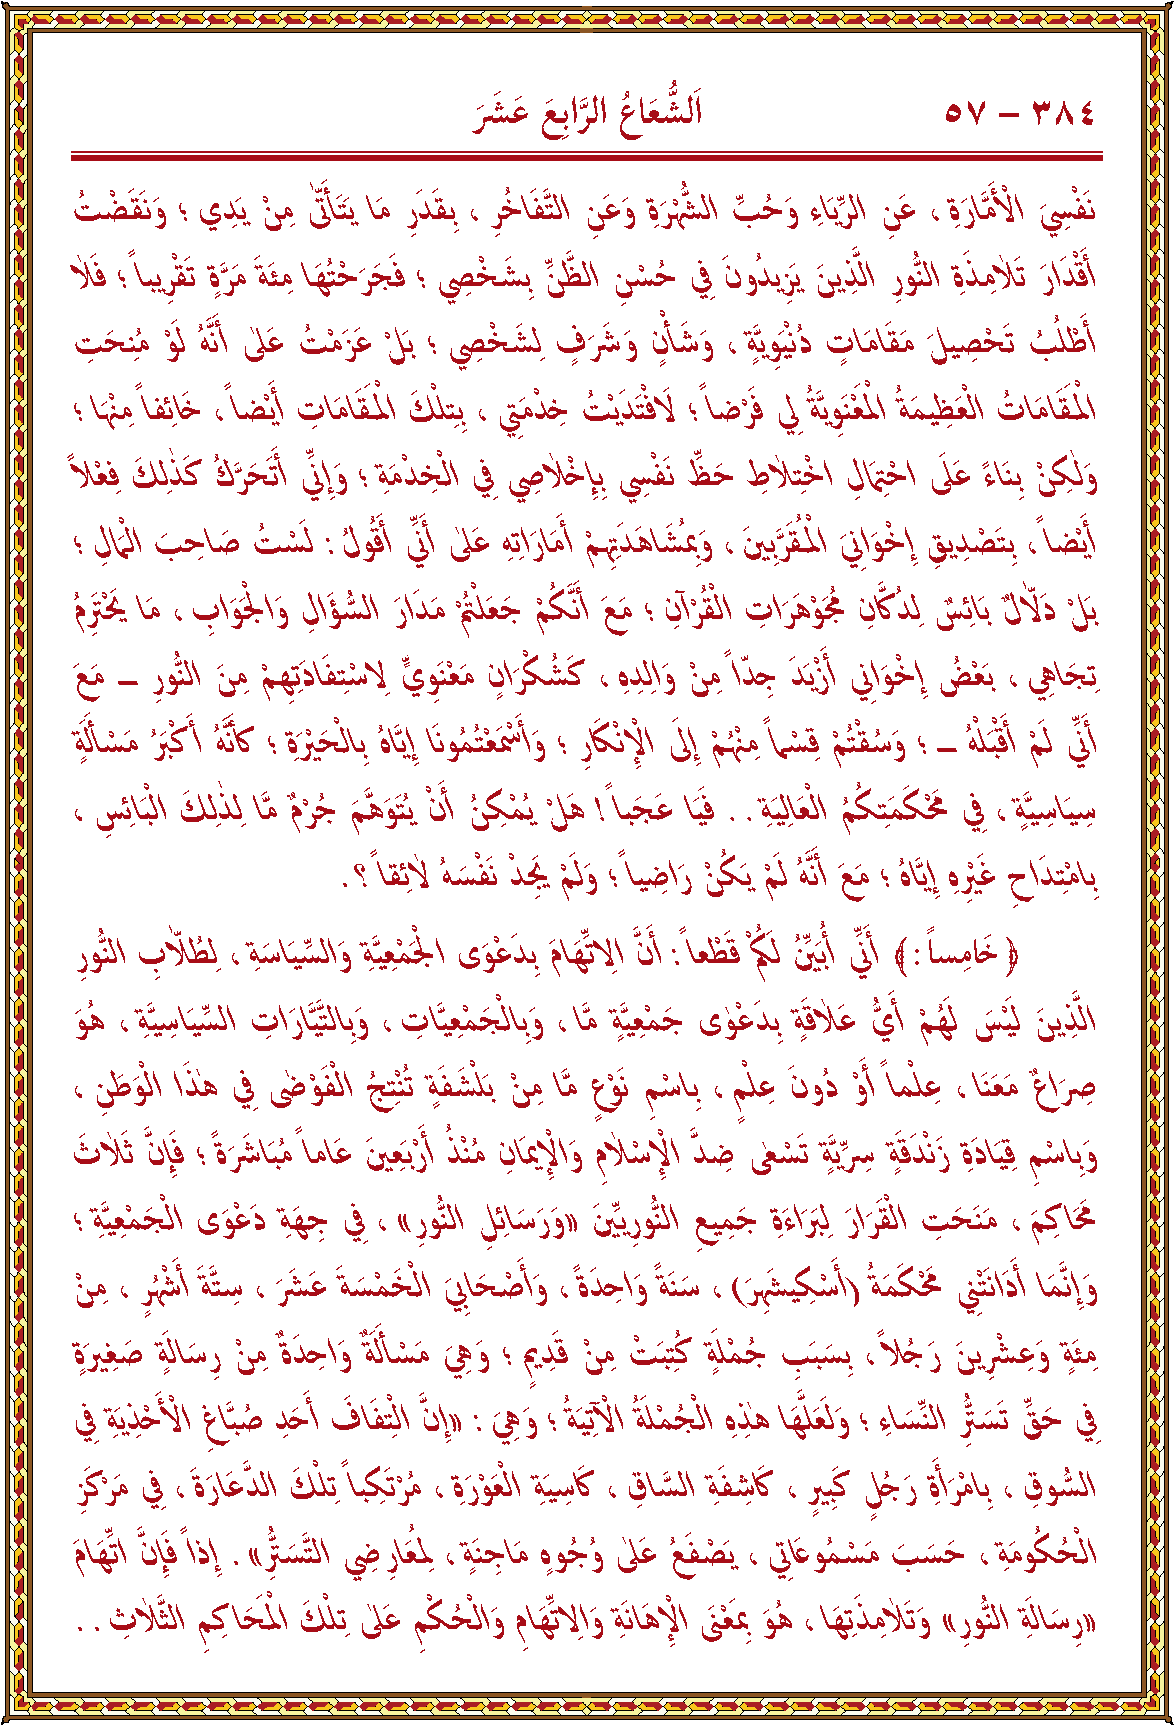 ٣٨٤ – ٥٧ اَلشُّعَاعُ الرَّابِعَ عَشَرَ
نَفْسِيَ الْأَمَّارَةِ ، عَنِ الرِّيَاءِ وَحُبِّ الشُّهْرَةِ وَعَنِ التَّفَاخُرِ ، بِقَدَرِ مَا يَتَأَتّٰى مِنْ يَدِي ؛ وَنَقَضْتُ
أَقْدَارَ تَلَامِذَةِ النُّورِ الَّذِينَ يَزِيدُونَ فِي حُسْنِ الظَّنِّ بِشَخْصِي ؛ فَجَرَحْتُهَا مِئَةَ مَرَّةٍ تَقْرِيباً ؛ فَلَا
أَطْلُبُ تَحْصِيلَ مَقَامَاتٍ دُنْيَوِيَّةٍ ، وَشَأْنٍ وَشَرَفٍ لِشَخْصِي ؛ بَلْ عَزَمْتُ عَلٰى أَنَّهُ لَوْ مُنِحَتِ
الْمَقَامَاتُ الْعَظِيمَةُ الْمَعْنَوِيَّةُ لِي فَرْضاً ؛ لَافْتَدَيْتُ خِدْمَتِي ، بِتِلْكَ الْمَقَامَاتِ أَيْضاً ، خَائِفاً مِنْهَا ؛
وَلٰكِنْ بِنَاءً عَلَى احْتِمَالِ اخْتِلَاطِ حَظِّ نَفْسِي بِإِخْلَاصِي فِي الْخِدْمَةِ ؛ وَإِنِّي أَتَحَرَّكُ كَذٰلِكَ فِعْلاً
أَيْضاً ، بِتَصْدِيقِ إِخْوَانِيَ الْمُقَرَّبِينَ ، وَبِمُشَاهَدَتِهِمْ أَمَارَاتِهِ عَلٰى أَنِّي أَقُولُ : لَسْتُ صَاحِبَ الْمَالِ ؛
بَلْ دَلَّالٌ بَائِسٌ لِدُكَّانِ مُجَوْهَرَاتِ الْقُرْآنِ ؛ مَعَ أَنَّكُمْ جَعَلْتُمْ مَدَارَ السُّؤَالِ وَالْجَوَابِ ، مَا يَحْتَرِمُ
تِجَاهِي ، بَعْضُ إِخْوَانِي أَزْيَدَ جِدّاً مِنْ وَالِدِهِ ، كَشُكْرَانٍ مَعْنَوِيٍّ لِاسْتِفَادَتِهِمْ مِنَ النُّورِ – مَعَ
أَنِّي لَمْ أَقْبَلْهُ – ؛ وَسُقْتُمْ قِسْماً مِنْهُمْ إِلَى الْإِنْكَارِ ؛ وَأَسْمَعْتُمُونَا إِيَّاهُ بِالْحَيْرَةِ ؛ كَأَنَّهُ أَكْبَرُ مَسْأَلَةٍ
سِيَاسِيَّةٍ ، فِي مَحْكَمَتِكُمُ الْعَالِيَةِ . . فَيَا عَجَباً ! هَلْ يُمْكِنُ أَنْ يُتَوَهَّمَ جُرْمٌ مَّا لِذٰلِكَ الْبَائِسِ ،
بِامْتِدَاحِ غَيْرِهِ إِيَّاهُ ؛ مَعَ أَنَّهُ لَمْ يَكُنْ رَاضِياً ؛ وَلَمْ يَجِدْ نَفْسَهُ لَائِقاً ؟ .
﴿ خَامِساً : ﴾ أَنِّي أُبَيِّنُ لَكُمْ قَطْعاً : أَنَّ الِاتِّهَامَ بِدَعْوَى الْجَمْعِيَّةِ وَالسِّيَاسَةِ ، لِطُلَّابِ النُّورِ
الَّذِينَ لَيْسَ لَهُمْ أَيُّ عَلَاقَةٍ بِدَعْوٰى جَمْعِيَّةٍ مَّا ، وَبِالْجَمْعِيَّاتِ ، وَبِالتَّيَّارَاتِ السِّيَاسِيَّةِ ، هُوَ
صِرَاعٌ مَعَنَا ، عِلْماً أَوْ دُونَ عِلْمٍ ، بِاسْمِ نَوْعٍ مَّا مِنْ بَلْشَفَةٍ تُنْتِجُ الْفَوْضٰى فِي هٰذَا الْوَطَنِ ،
وَبِاسْمِ قِيَادَةِ زَنْدَقَةٍ سِرِّيَّةٍ تَسْعٰى ضِدَّ الْإِسْلَامِ وَالْإِيمَانِ مُنْذُ أَرْبَعِينَ عَاماً مُبَاشَرَةً ؛ فَإِنَّ ثَلَاثَ
مَحَاكِمَ ، مَنَحَتِ الْقَرَارَ لِبَرَاءَةِ جَمِيعِ النُّورِيِّينَ «وَرَسَائِلِ النُّورِ» ، فِي جِهَةِ دَعْوَى الْجَمْعِيَّةِ ؛
وَإِنَّمَا أَدَانَتْنِي مَحْكَمَةُ (أَسْكِيشَهِرَ) ، سَنَةً وَاحِدَةً ، وَأَصْحَابِيَ الْخَمْسَةَ عَشَرَ ، سِتَّةَ أَشْهُرٍ ، مِنْ
مِئَةٍ وَعِشْرِينَ رَجُلاً ، بِسَبَبِ جُمْلَةٍ كُتِبَتْ مِنْ قَدِيمٍ ؛ وَهِيَ مَسْأَلَةٌ وَاحِدَةٌ مِنْ رِسَالَةٍ صَغِيرَةٍ
فِي حَقِّ تَسَتُّرِ النِّسَاءِ ؛ وَلَعَلَّهَا هٰذِهِ الْجُمْلَةُ الْآتِيَةُ ؛ وَهِيَ : «إِنَّ الْتِفَافَ أَحَدِ صُبَّاغِ الْأَحْذِيَةِ فِي
السُّوقِ ، بِامْرَأَةِ رَجُلٍ كَبِيرٍ ، كَاشِفَةِ السَّاقِ ، كَاسِيَةِ الْعَوْرَةِ ، مُرْتَكِباً تِلْكَ الدَّعَارَةَ ، فِي مَرْكَزِ
الْحُكُومَةِ ، حَسَبَ مَسْمُوعَاتِي ، يَصْفَعُ عَلٰى وُجُوهٍ مَاجِنَةٍ ، لِمُعَارِضِي التَّسَتُّرِ» . إِذاً فَإِنَّ اتِّهَامَ
«رِسَالَةِ النُّورِ» وَتَلَامِذَتِهَا ، هُوَ بِمَعْنَى الْإِهَانَةِ وَالِاتِّهَامِ وَالْحُكْمِ عَلٰى تِلْكَ الْمَحَاكِمِ الثَّلَاثِ . .